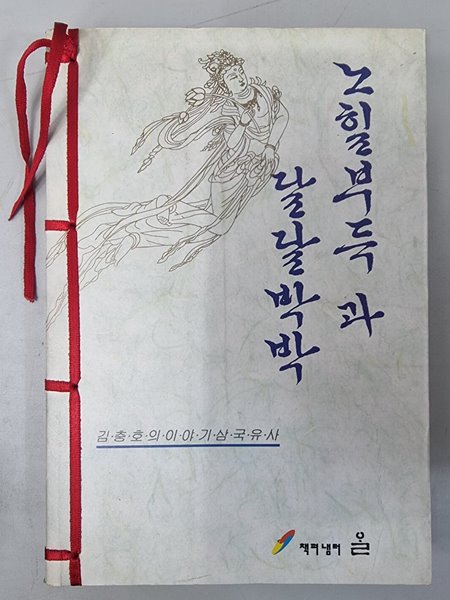 노힐부득과
달달박박
김·충·호·의·이·야·기·삼·국·유·사
책펴냄터 율